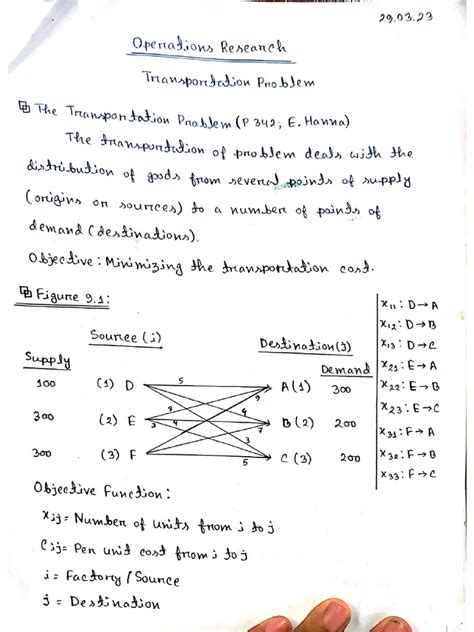 29.03.23
Operations Research
Transportation Problem
The Transportation Problem (P 342, E. Hanna)
The transportation of problem deals with the
distribution of goods from several points of supply
(origins or sources) to a number of points of
demand (destinations).
Objective: Minimizing the transportation cost.
Figure 9.1:
Source (i)
Destination (j)
Supply
Demand
100 (1) D 5 A (1) 300
300 (2) E B (2) 200
300 (3) F 5 C (3) 200
4
9
3
4
7
3
X11: D→A
X12: D→B
X13: D→C
X21: E→A
X22: E→B
X23: E→C
X31: F→A
X32: F→B
X33: F→C
Objective Function:
Xij= Number of units from i to j
Cij= Per unit cost from i to j
i = Factory / Source
j = Destination